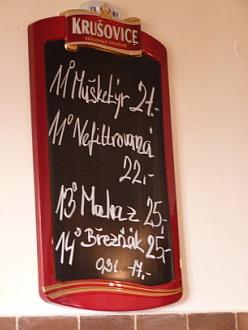 KRUŠOVICE
KRÁLOVSKÝ PIVOVAR
11° Mušketýr 21.-
11° Nefiltrovaná
22,-
13° Mahaz 25,-
14° Březňák 25,-
0,3l -17,-